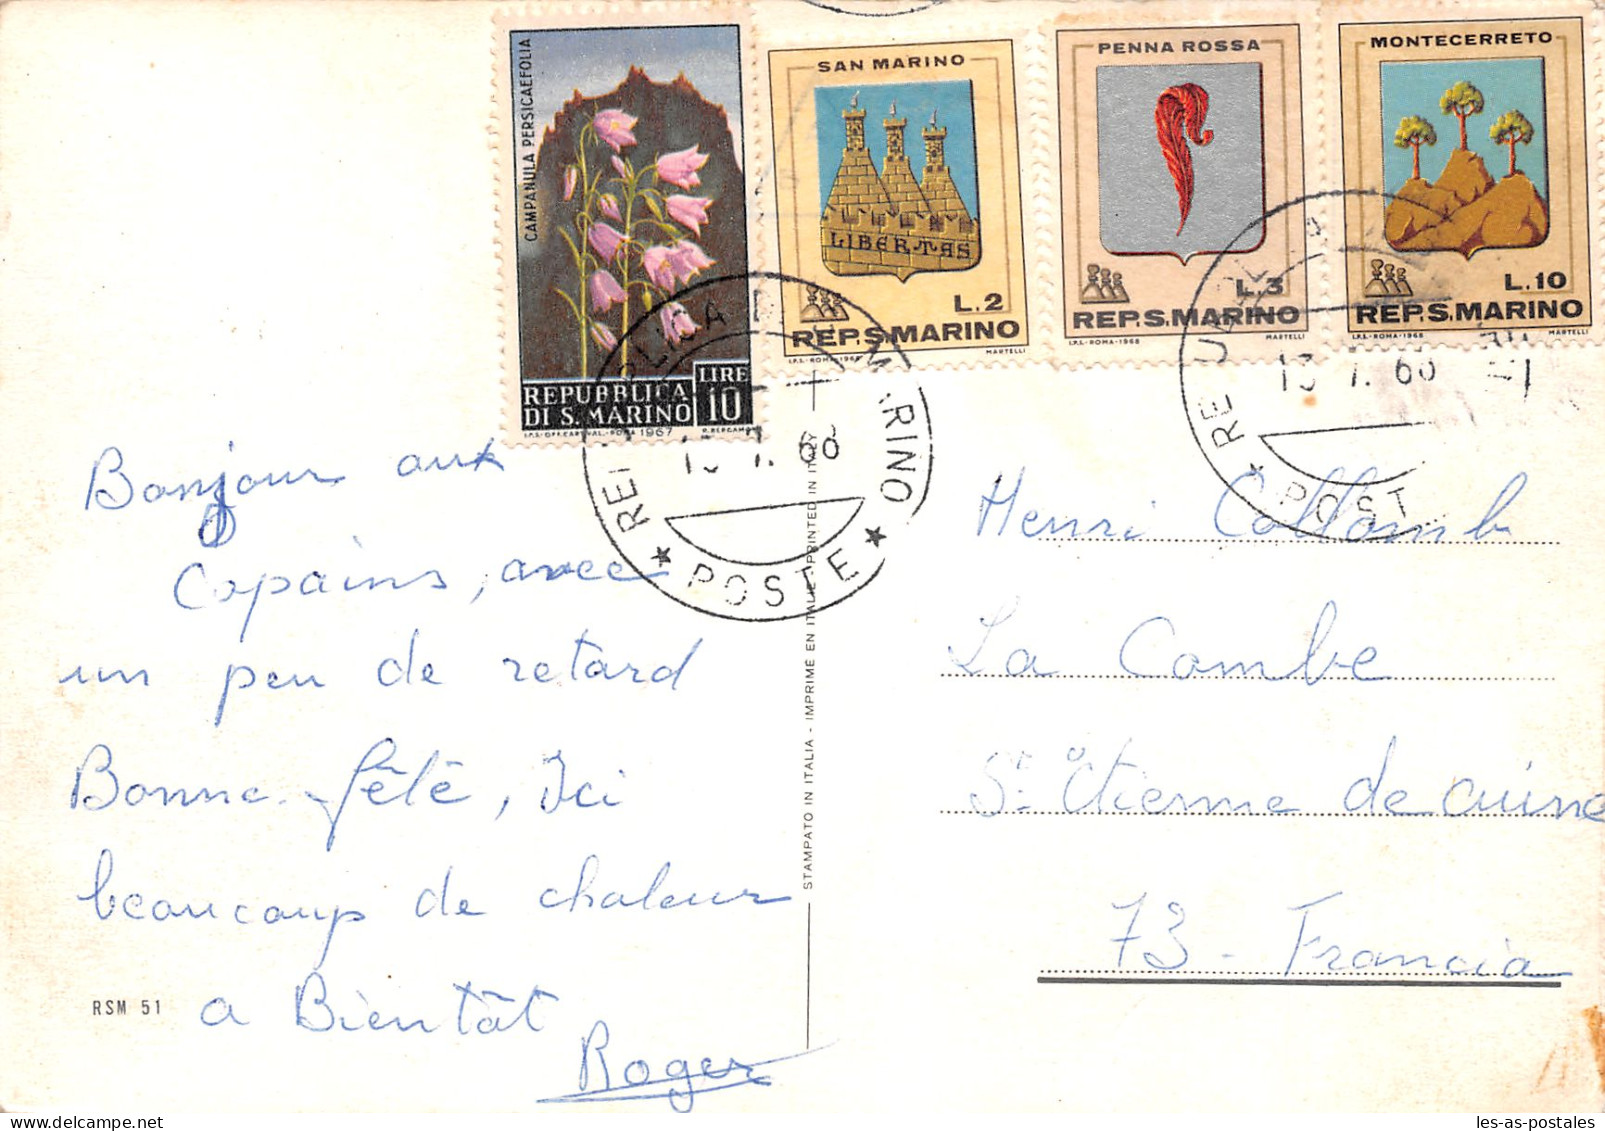 CAMPANULA PERSICAEFOLIA
REPUBBLICA
DI S. MARINO
LIRE
10
I.P.S.-OFF. CART. VAL.-ROMA 1967
SAN MARINO
LIBERTAS
L.2
REP.S.MARINO
I.P.S.-ROMA-1968 MARTELLI
PENNA ROSSA
L.3
REP.S.MARINO
I.P.S.-ROMA-1968
MONTECERRETO
L.10
REP.S.MARINO
I.P.S.-ROMA-1968 MARTELLI
POSTE
POST
Bonjour aux
Copains, avec
un peu de retard
Bonne fêtê, Ici
beaucoup de chaleur
a Bientât
Roger
RSM 51
STAMPATO IN ITALIA - IMPRIME EN ITALIE - PRINTED IN ITALY
Henri Collomb
La Combe
St Etienne de cuine
73 - Francia
les-as-postales